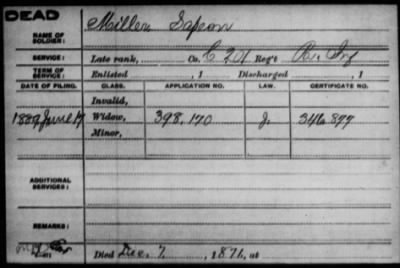 DEAD
NAME OF SOLDIER: Miller
SERVICE: Late rank, Co. C 201 Reg't Pa. Inf
TERM OF SERVICE: Enlisted , 1 Discharged , 1
DATE OF FILING. CLASS. APPLICATION NO. LAW. CERTIFICATE NO.
Invalid,
1889 June 17 Widow, 398,170 346,877
Minor,
ADDITIONAL SERVICES:
REMARKS:
Died Dec. 7, 1876, at